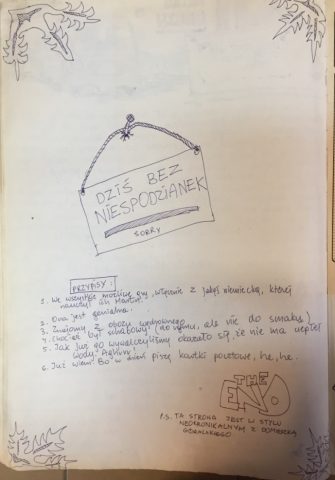 DZIŚ BEZ
NIESPODZIANEK
SORRY
PRZYPISY:
1. We wszystkie możliwe gry, włącznie z jakąś niemiecką, której
nauczył ich Martin.
2. Ona jest genialna.
3. Znajomy z obozu wędrownego
4. Choć był schabowy (do rymu, ale nie do smaku)
5. Jak już go wywalczyliśmy okazało się, że nie ma ciepłej
wody.
6. Już wiem! Bo w dzień piszę kartki pocztowe, he, he.
THE
END
P.S. TA STRONA JEST W STYLU
NEOGRONIKALNYM Z DOMIESZKĄ
GÓRALSKIEGO.